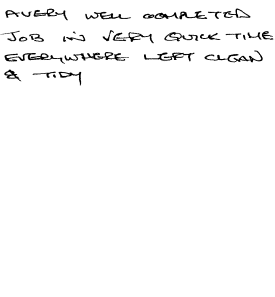 AVERY WELL COMPLETED
JOB IN VERY QUICK TIME
EVERYWHERE LEFT CLEAN
& TIDY